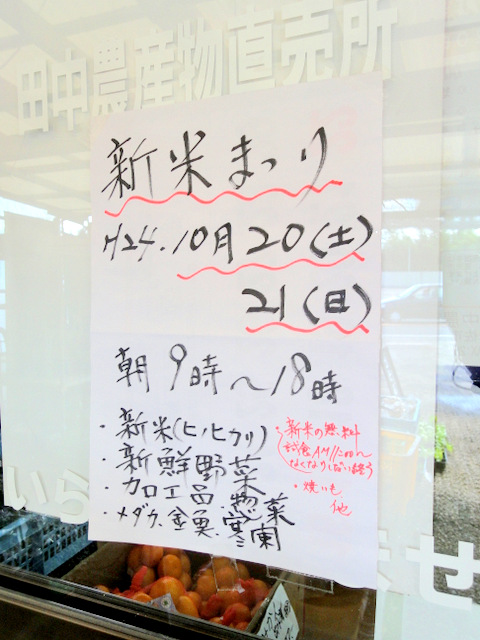 田中農産物直売所
新米まつり
H24.10月20(土)
21(日)
朝9時~18時
・新米(ヒノヒカリ)
・新鮮野菜
・カロエ品.惣菜
・メダカ.金魚.寒蘭
・新米の無料
試食AM11:00〜
なくなりしだい終う
・焼いも
他
いら
ませ